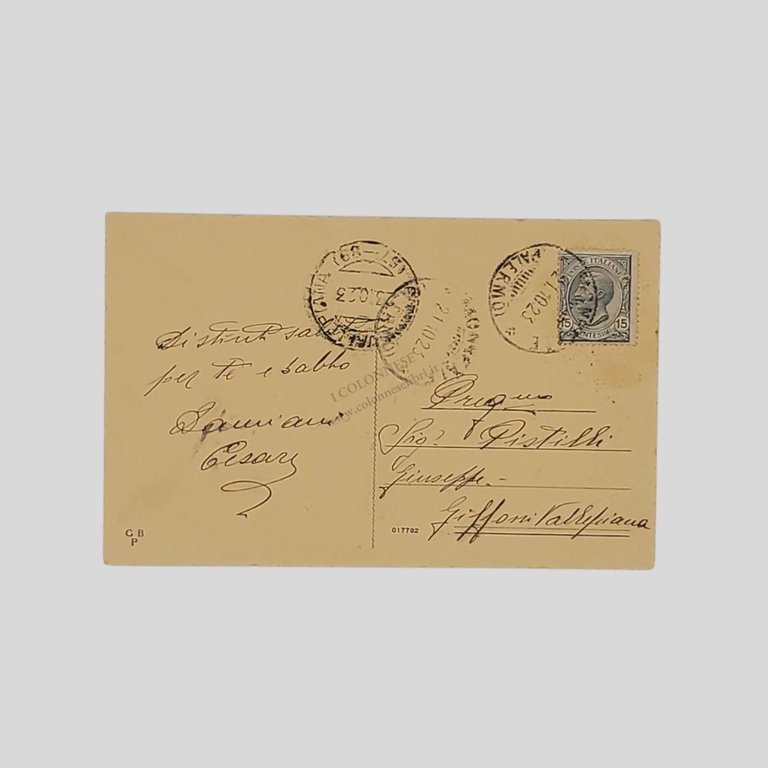 Distinti saluti
per te e babbo
Damiani
Cesare
G B
P
PALERMO
21.10.23
POSTE ITALIANE
15 CENTESIMI 15
21.10.23
3.10.23
VALLE PIANA
I COLONNESE
www.colonneselibri.it
Preg.mo
Sig.r Pistilli
Giuseppe.-
Giffoni Vallepiana
017702